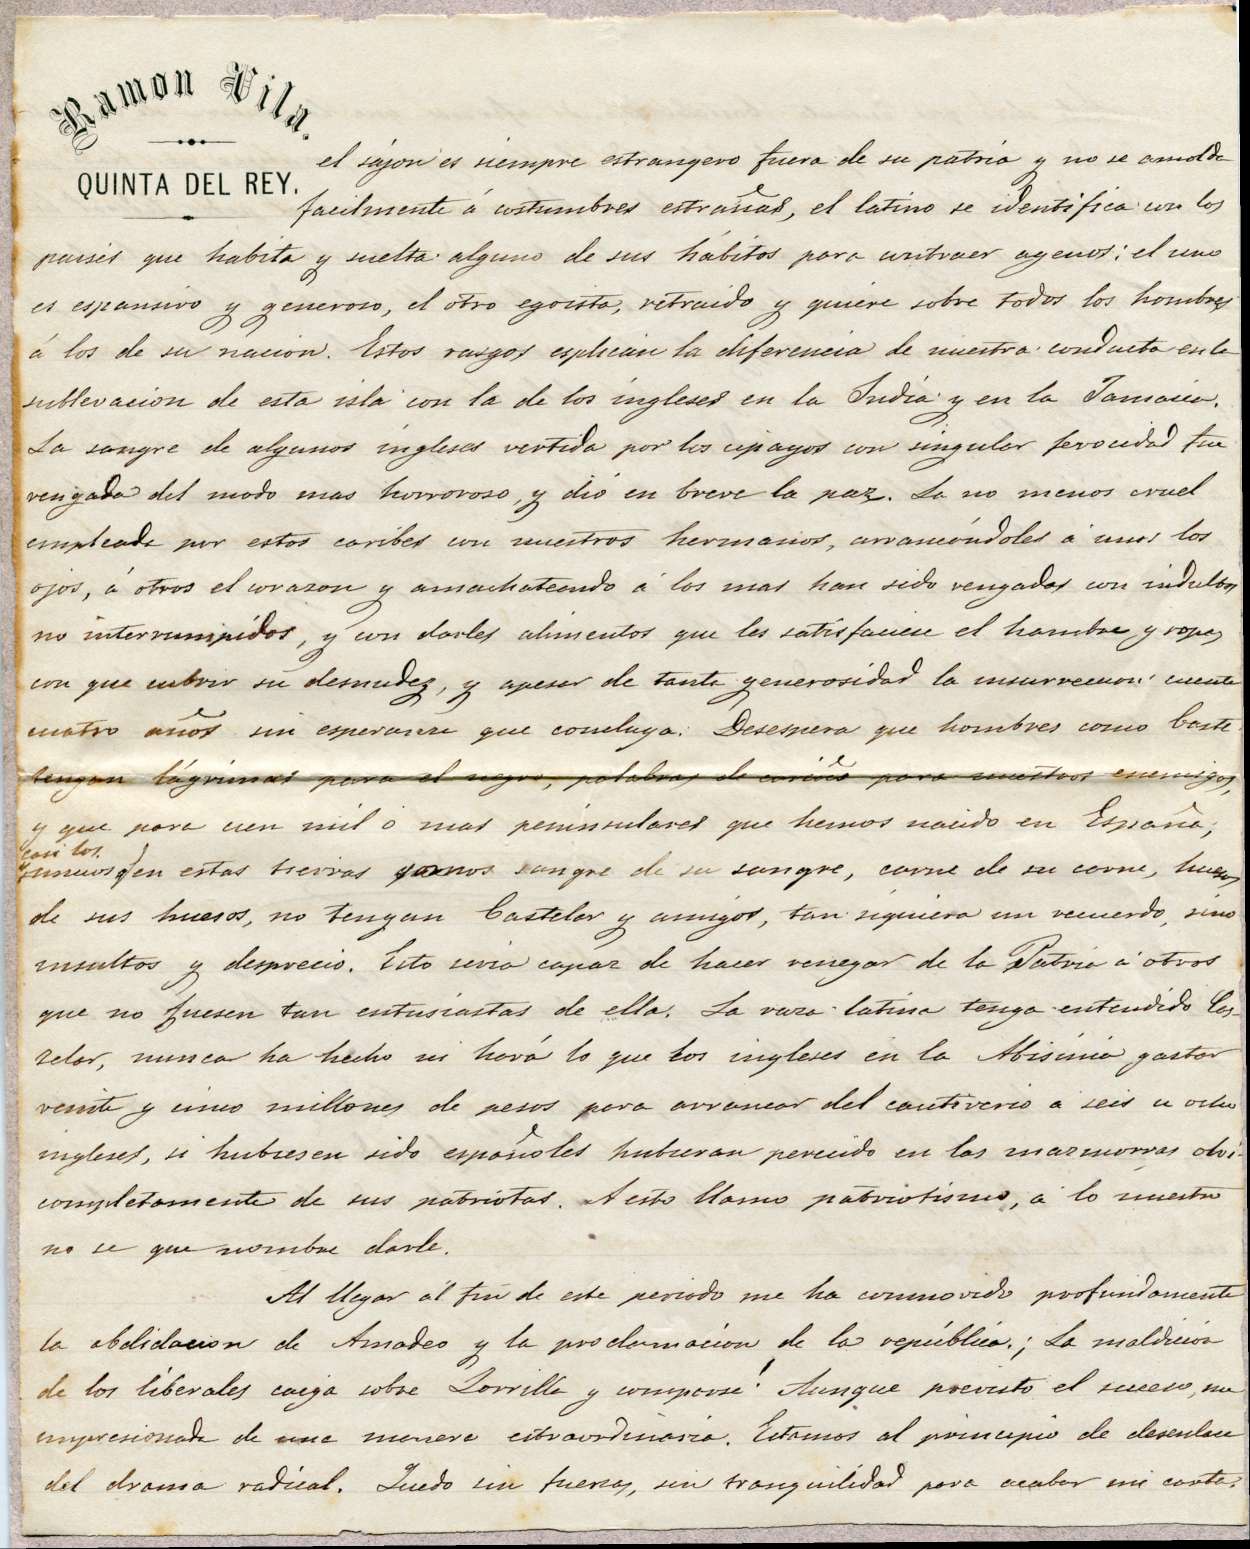 Ramon Vila.
QUINTA DEL REY.
el sajon es siempre estrangero fuera de su patria y no se amolda
facilmente á costumbres estrañas, el latino se identifica con los
paises que habita y suelta alguno de sus hábitos para contraer agenos; el uno
es espansivo y generoso, el otro egoista, retraido y quiere sobre todos los hombres
á los de su nacion. Estos rasgos esplican la diferencia de nuestra conducta en la
sublevacion de esta isla con la de los ingleses en la India y en la Jamaica.
La sangre de algunos ingleses vertida por los cipayos con singular ferocidad fue
vengada del modo mas horroroso, y dió en breve la paz. La no menos cruel
empleada por estos caribes con nuestros hermanos, arrancándoles á unos los
ojos, á otros el corazon y amachateando á los mas han sido vengadas con indultos
no interrumpidos, y con darles alimentos que les satisfaciese el hambre y ropas
con que cubrir su desnudez, y apesar de tanta generosidad la insurreccion cuenta
cuatro años sin esperanza que concluya. Desespera que hombres como Caste
tengan lágrimas para el negro, palabras de cariño para nuestros enemigos,
y que para cien mil o mas peninsulares que hemos nacido en España,
casi los
unicos q' en estas tierras somos sangre de su sangre, carne de su carne, huesos
de sus huesos, no tengan Castelar y amigos, tan siquiera un recuerdo, sino
insultos y desprecio. Esto seria capaz de hacer renegar de la Patria á otros
que no fuesen tan entusiastas de ella. La raza latina tenga entendido Cas-
telar, nunca ha hecho ni hará lo que los ingleses en la Abisinia gastar
veinte y cinco millones de pesos para arrancar del cautiverio a seis u ocho
ingleses, si hubiesen sido españoles hubieran perecido en las mazmorras olvi-
completamente de sus patriotas. A esto llamo patriotismo, á lo nuestro
no se que nombre darle.
Al llegar al fin de este periodo me ha conmovido profundamente
la abdidacion de Amadeo y la proclamacion de la república.; La maldicion
de los liberales caiga sobre Zorrilla y comparsa! Aunque previsto el suceso, me
impresionada de una manera estraordinaria. Estamos al principio de desenlace
del drama radical. Quedo sin fuerzas, sin tranquilidad para acabar mi carta.